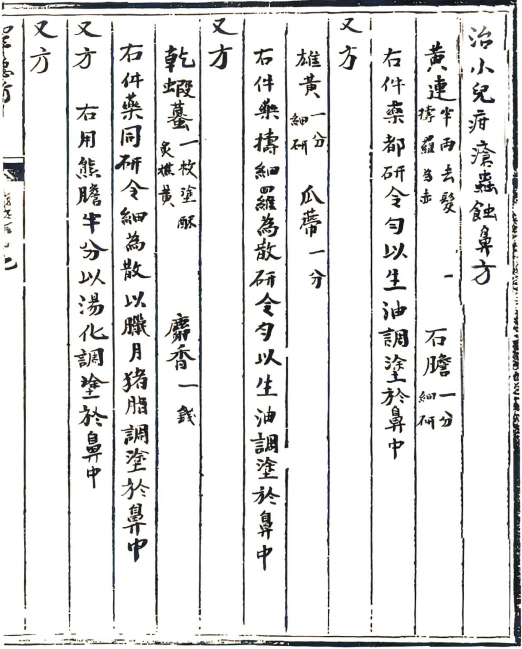 治小兒疳瘡蟲蝕鼻方
黃連半兩去鬚擣羅為赤 石膽一分細研
右件藥都研令勻以生油調塗於鼻中
又方
雄黃一分細研 瓜蔕一分
右件藥擣細羅為散研令勻以生油調塗於鼻中
又方
乾蝦蟇一枚塗酥炙燋黃 麝香一錢
右件藥同研令細為散以臘月猪脂調塗於鼻中
又方 右用熊膽半分以湯化調塗於鼻中
又方